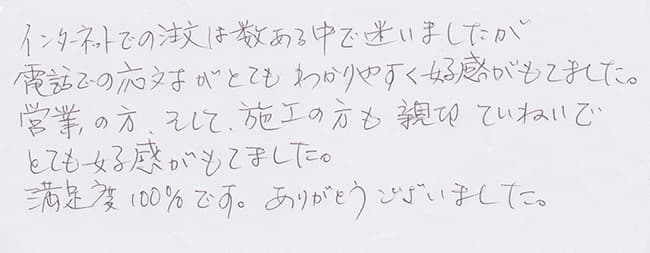 インターネットでの注文は数ある中で迷いましたが
電話での応対がとてもわかりやすく好感がもてました。
営業の方、そして、施工の方も親切ていねいで
とても好感がもてました。
満足度100%です。ありがとうございました。